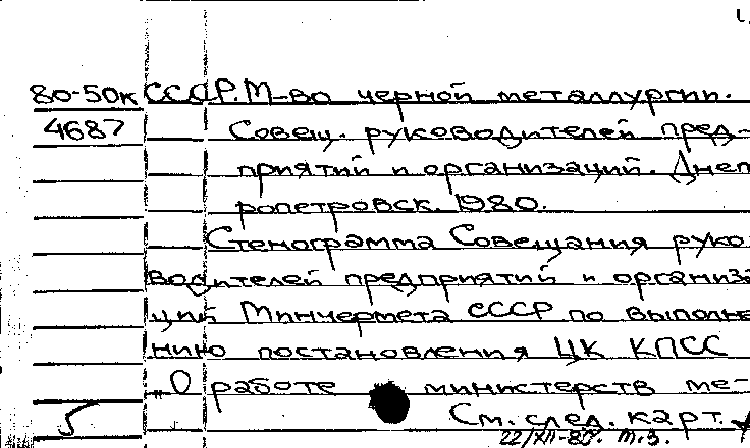 80-50к СССР. М-во черной металлургии.
4687 Совещ. руководителей пред-
приятий и организаций. Днеп
ропетровск. 1980.
Стенограмма Совещания руко
водителей предприятий и организа
ций Минчермета СССР по выполне
нию постановления ЦК КПСС
„О работе министерств ме-
5 См. след. карт.
22/XII-80г. т.з.